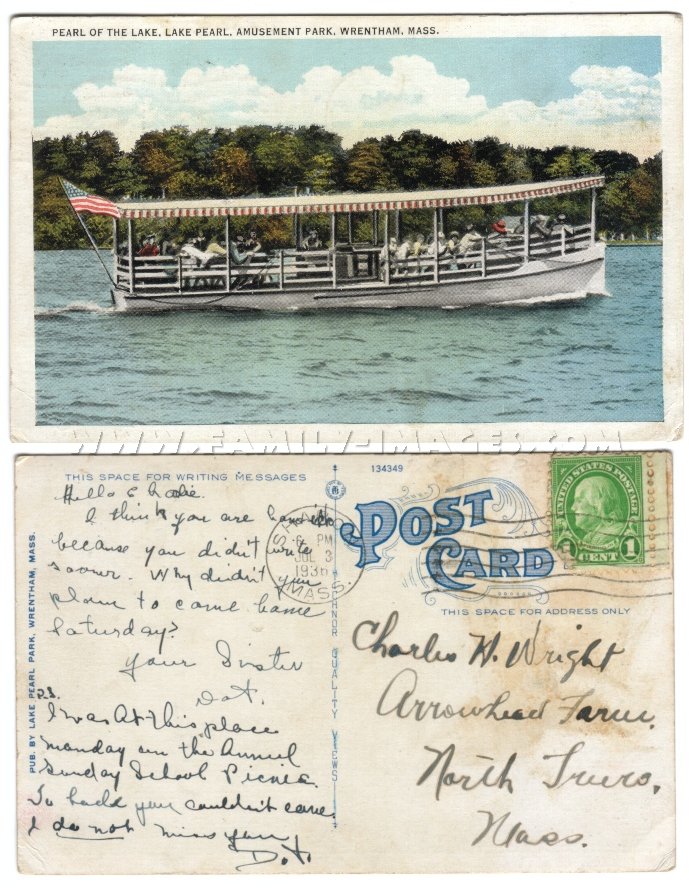 PEARL OF THE LAKE, LAKE PEARL, AMUSEMENT PARK, WRENTHAM, MASS.
WWW.FAMILY-IMAGES.COM
THIS SPACE FOR WRITING MESSAGES
134349
Hello
I think you are
because you didn't write
sooner. Why didn't you
plan to come home
Saturday?
Your Sister
Dot.
P.S.
I was At this place
Monday on the Annual
Sunday School Picnic.
To badd you couldn't come
I do not miss you
Dot.
PUB. BY LAKE PEARL PARK, WRENTHAM, MASS.
QUALITY VIEWS
SHARON
6 PM
JUL 3
1936
MASS.
POST
CARD
UNITED STATES POSTAGE
1
CENT
1
THIS SPACE FOR ADDRESS ONLY
Charles W. Wright
Arrowhead Farm.
North Truro,
Mass.